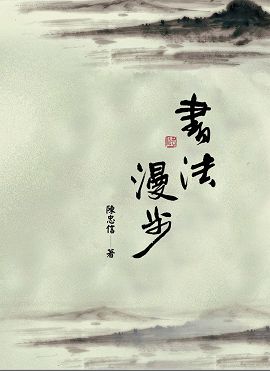 書法
漫步
陳忠信 著